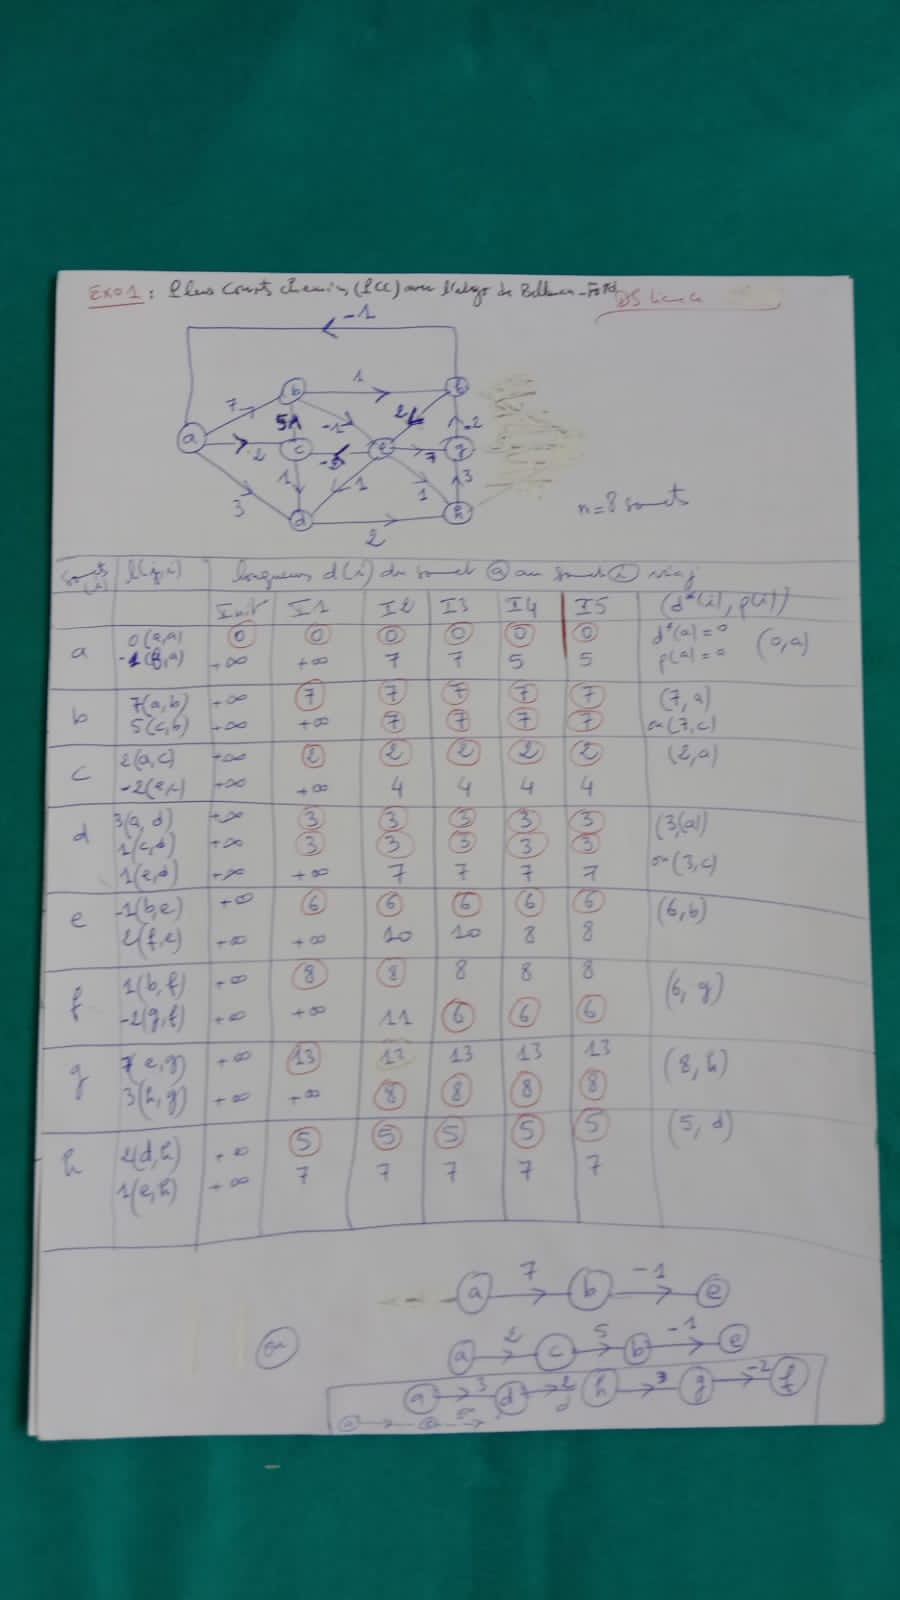 EXO1 : Plus Courts chemins (PCC) avec l'algo de Bellman-Ford
DS
-1
b 1 f
7 5 -1 2 -2
a 2 c e 7 g
1 1 1 3
3 d 2 h
n=8 sommets
Sommets (i) l(j,i) longueurs d(i) du sommet a au sommet i via j
Init I1 I2 I3 I4 I5 (d*(i), p(i))
a 0(a,a) 0 0 0 0 0 0 d*(a)=0 (0,a)
-1(f,a) +∞ +∞ 7 7 5 5 p(a)=a
b 7(a,b) +∞ 7 7 7 7 7 (7,a)
5(c,b) +∞ +∞ 7 7 7 7 ou (7,c)
c 2(a,c) +∞ 2 2 2 2 2 (2,a)
-2(e,c) +∞ +∞ 4 4 4 4
d 3(a,d) +∞ 3 3 3 3 3 (3,a)
1(c,d) +∞ 3 3 3 3 3 ou (3,c)
1(e,d) +∞ +∞ 7 7 7 7
e -1(b,e) +∞ 6 6 6 6 6 (6,b)
2(f,e) +∞ +∞ 10 10 8 8
f 1(b,f) +∞ 8 8 8 8 8 (6,g)
-2(g,f) +∞ +∞ 11 6 6 6
g 7(e,g) +∞ 13 13 13 13 13 (8,h)
3(h,g) +∞ +∞ 8 8 8 8
h 2(d,h) +∞ 5 5 5 5 5 (5,d)
1(e,h) +∞ 7 7 7 7 7
a 7 b -1 e
ou a 2 c 5 b -1 e
a 3 d 2 h 3 g -2 f